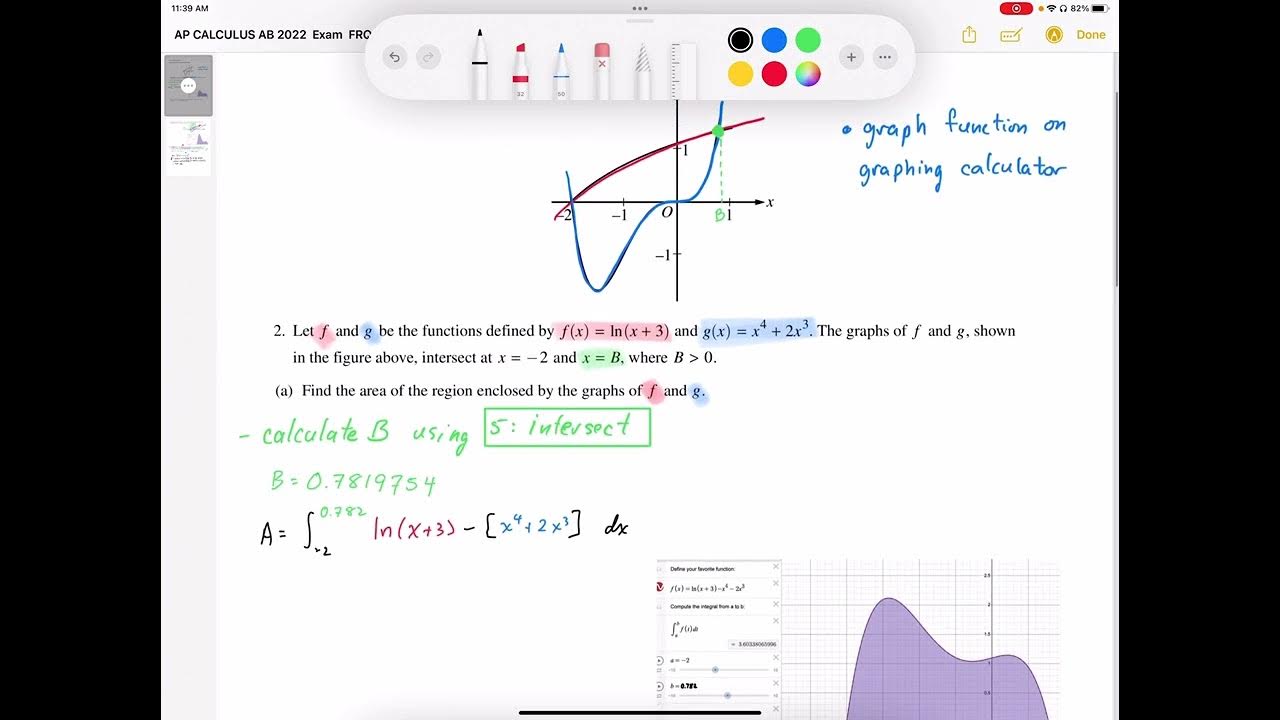 11:39 AM
82%
AP CALCULUS AB 2022 Exam FRQ
Done
32
50
• graph function on
graphing calculator
1
-2
-1
O
B
1
x
-1
2. Let f and g be the functions defined by f(x) = ln(x + 3) and g(x) = x⁴ + 2x³. The graphs of f and g, shown
in the figure above, intersect at x = −2 and x = B, where B > 0.
(a) Find the area of the region enclosed by the graphs of f and g.
- calculate B using 5: intersect
B = 0.7819754
A = ∫₋₂^0.782 ln(x+3) − [x⁴ + 2x³] dx
Define your favorite function:
f(x) = ln(x + 3) − x⁴ − 2x³
Compute the integral from a to b:
∫ₐᵇ f(t) dt
= 3.60338065996
a = −2
b = 0.782
2.5
2
1.5
1
0.5